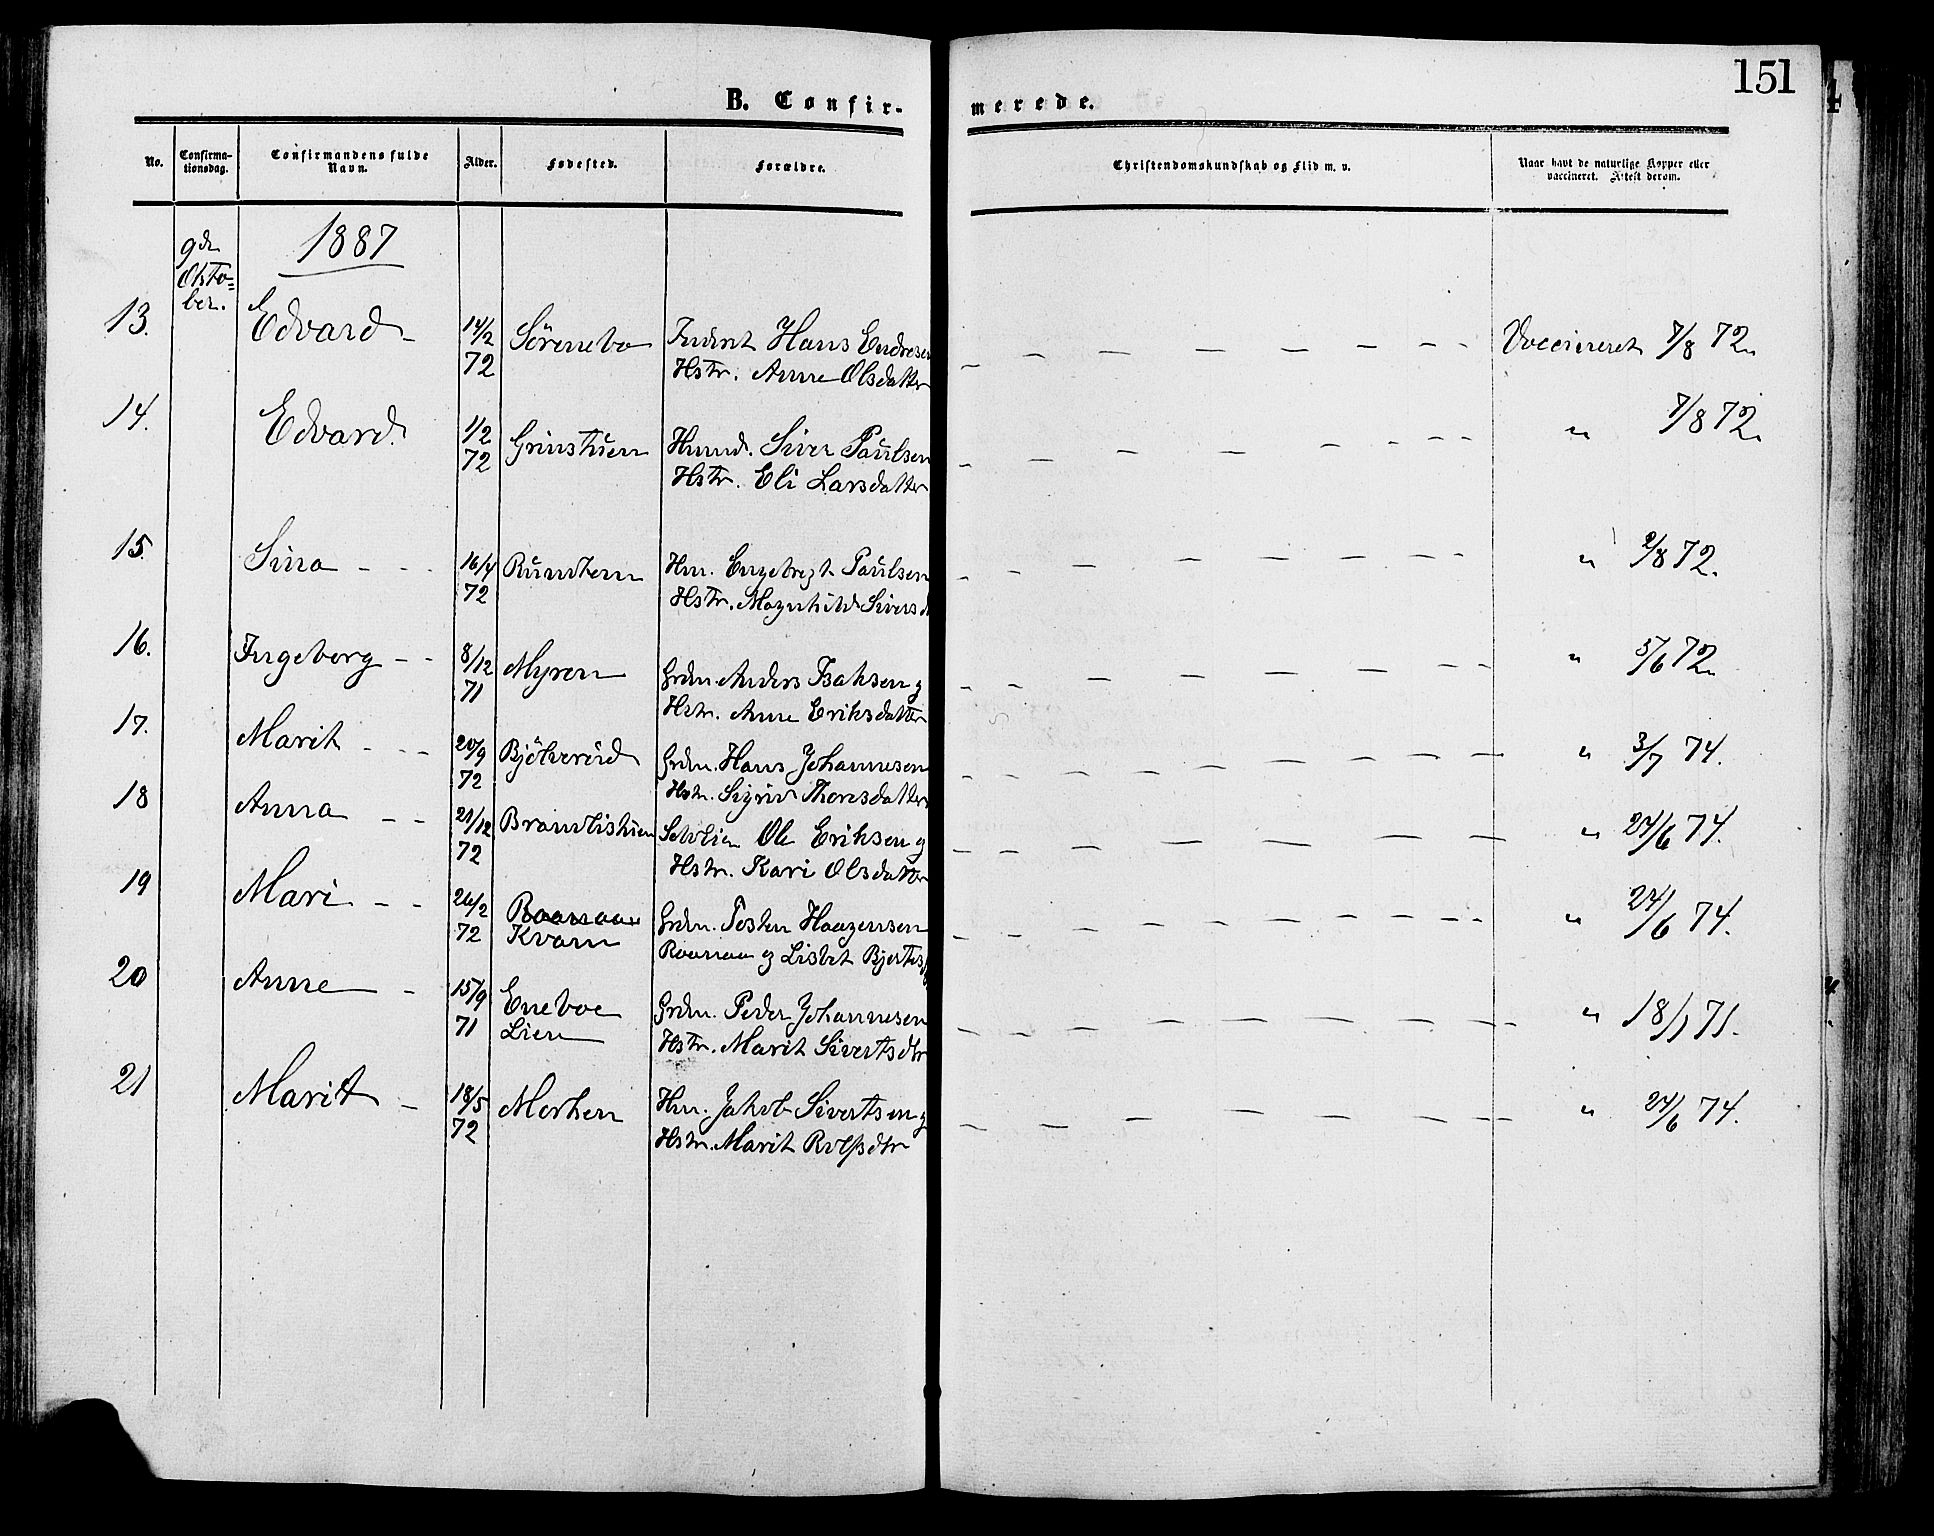 151
B. Confir-
merede.
No.
Confirma-
tionsdag.
Confirmandens fulde
Navn.
Alder.
Fødested.
Forældre.
Christendomskundskab og Flid m. v.
Naar havt de naturlige Kopper eller
vaccineret. Attest derom.
9de
Okto=
ber.
1887
13. Edvard - 14/2 Sörenebo Inderst Hans Endresen Vaccineret 7/8 72.
72 Hstr. Anne Olsdatter
14. Edvard. 1/2 Grinstuen Hmnd. Siver Paulsen " 7/8 72.
72 Hstr. Eli Larsdatter
15. Sina - - - 16/4 Hm. Engebregt Paulsen " 2/8 72.
72 Hstr. Magnhild Siversd
16. Ingeborg - - 8/12 Myren Grdm. Anders Isaksen g " 5/6 72.
71 Hstr. Anne Eriksdatter
17. Marit - - - 20/9 Grdm. Hans Johannesen " 3/7 74.
72 Hstr. Sigrid Thorsdatter
18 Anna - - 21/12 Brandlistuen Ole Eriksen g " 24/6 74.
72 Hstr. Kari Olsdatter
19 Mari - - 20/2 Raanaae Grdm. Tosten Haagensen " 24/6 74.
72 Kvam Raanaa g Lisbet
20 Anne - 15/9 Eneboe Grdm. Peder Johannesen " 18/1 71.
71 Lien Hstr. Marit Sivertsdtr
21 Marit - 18/5 Morken Hm. Jakob Sivertsen g " 24/6 74.
72 Hstr. Marit Rolfsdtr